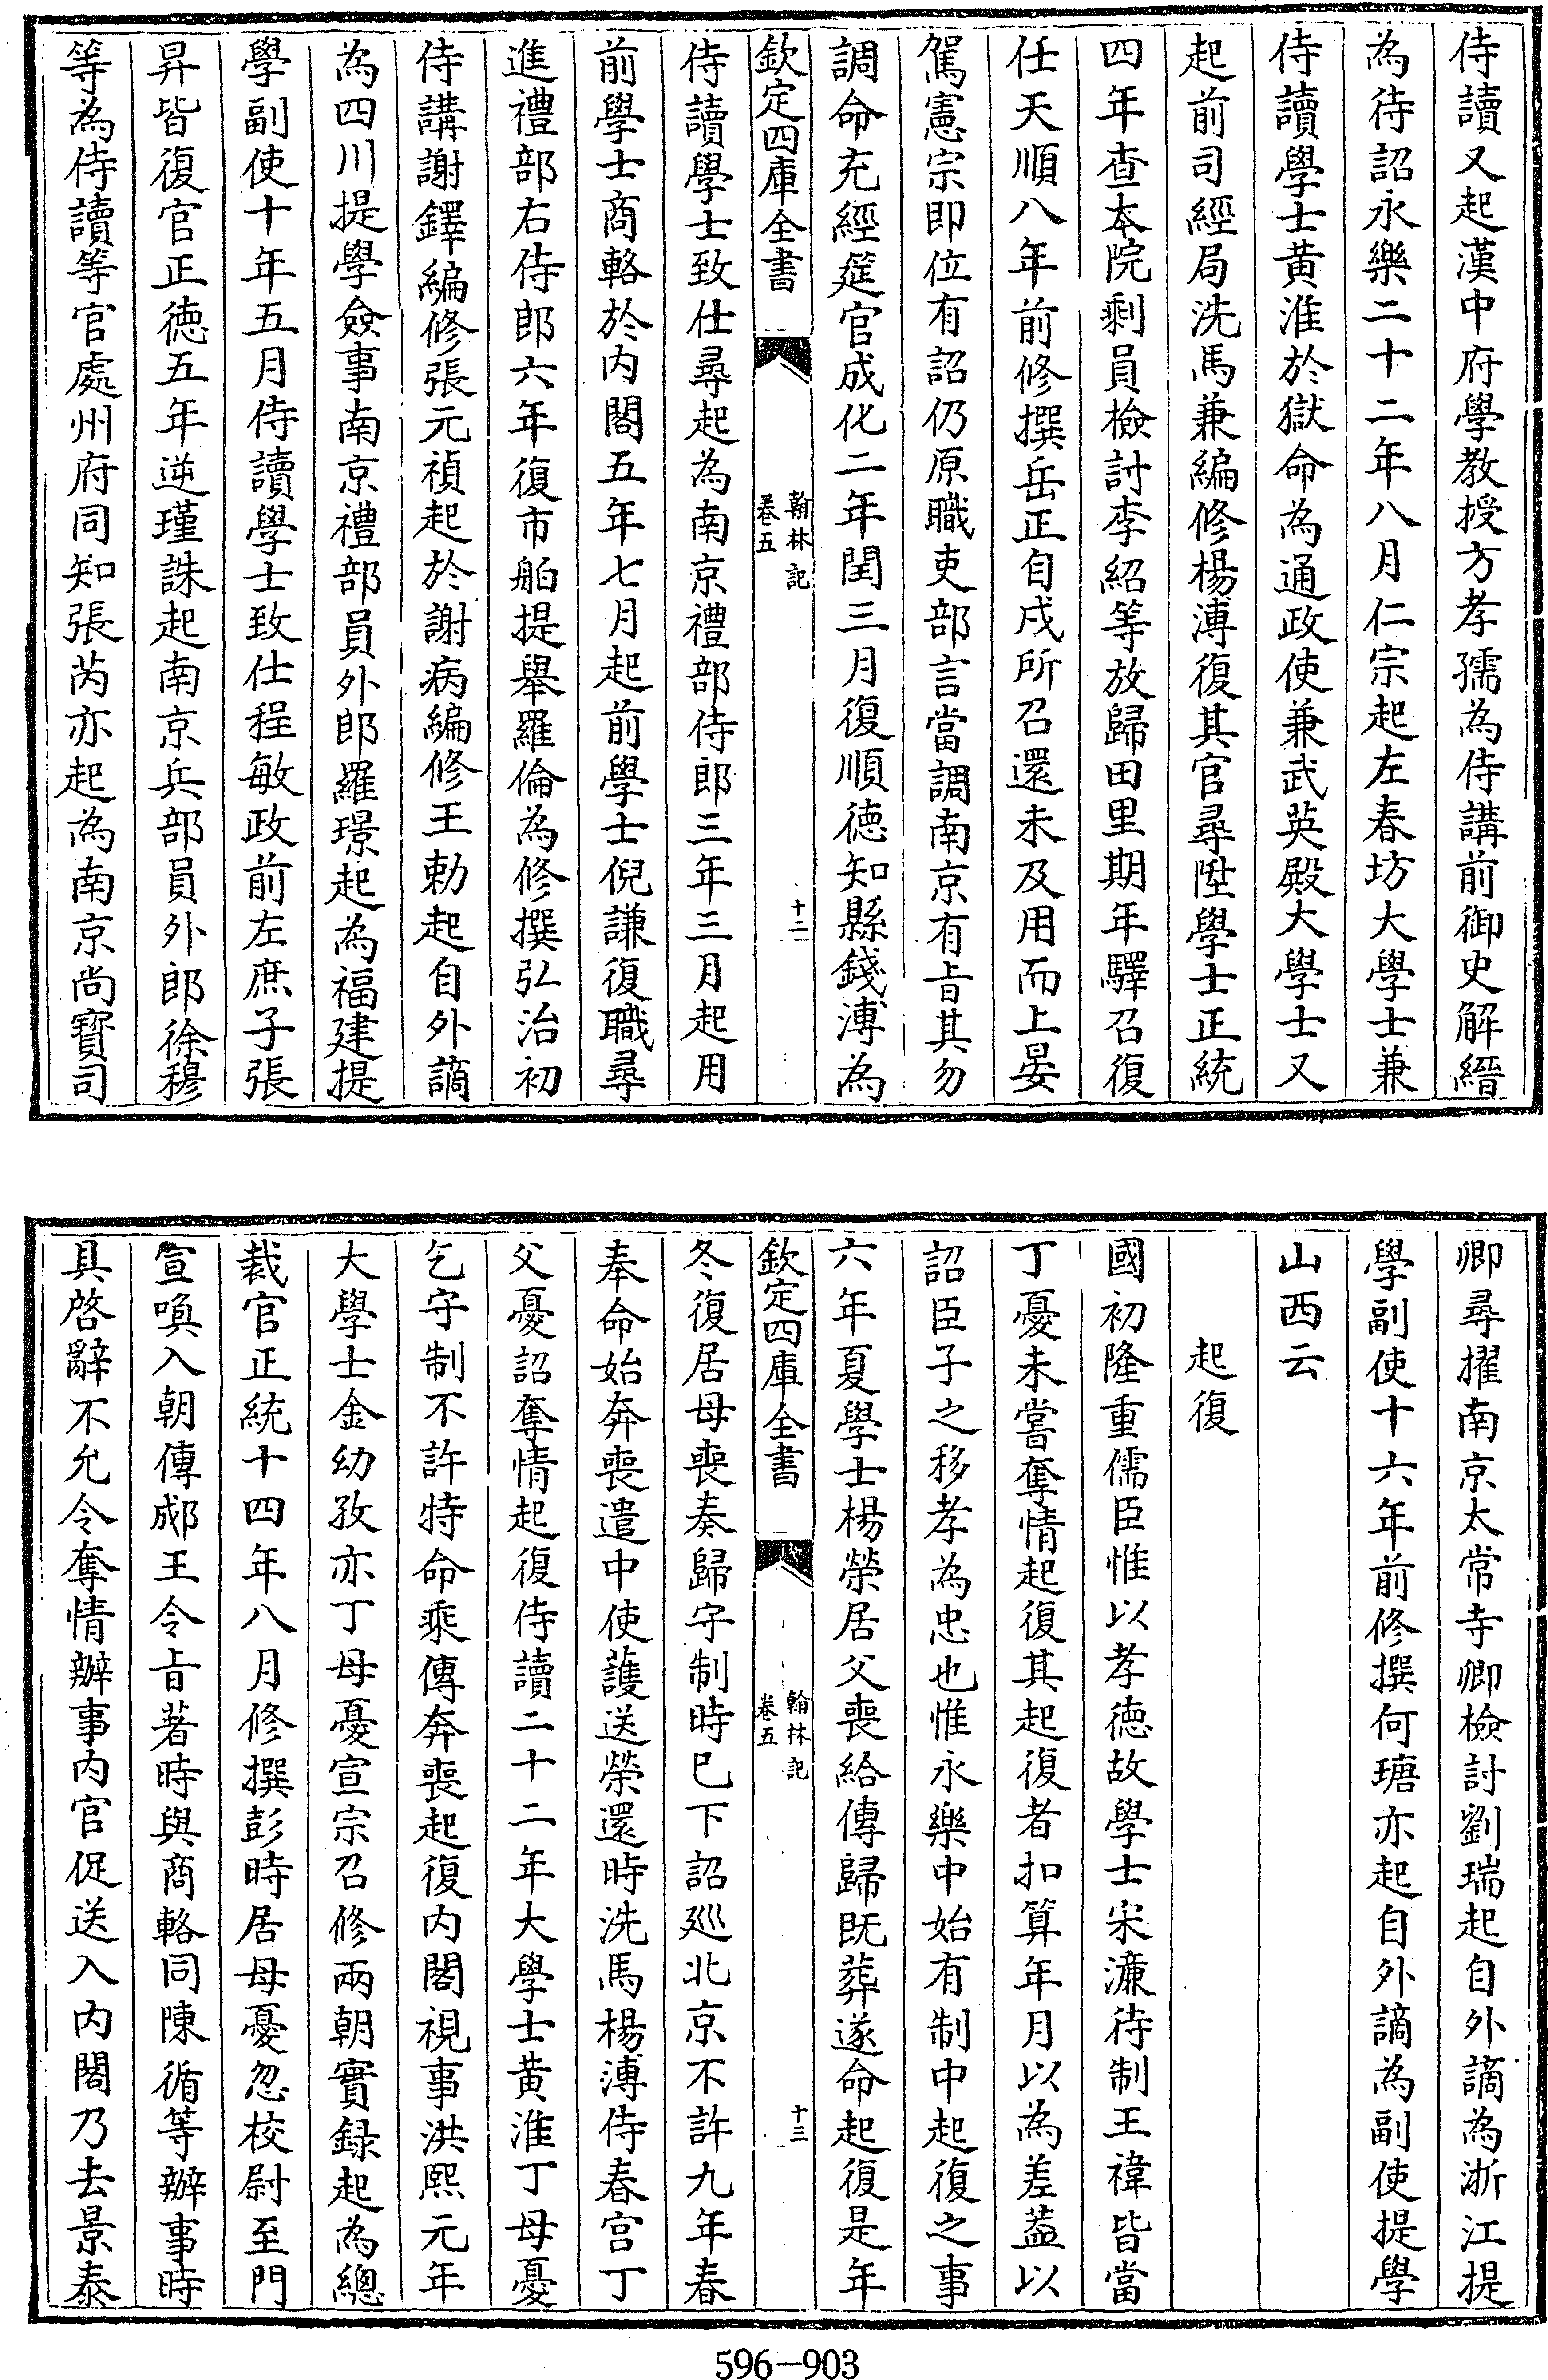 侍讀又起漢中府學教授方孝孺為侍講前御史解縉
為待詔永樂二十二年八月仁宗起左春坊大學士兼
侍讀學士黄淮於獄命為通政使兼武英殿大學士又
起前司經局洗馬兼編修楊溥復其官尋陞學士正統
四年查本院剩員檢討李紹等放歸田里期年驛召復
任天順八年前修撰岳正自戍所召還未及用而上晏
駕憲宗即位有詔仍原職吏部言當調南京有㫖其勿
調命充經筵官成化二年閏三月復順徳知縣錢溥為
欽定四庫全書
翰林記
卷五
十二
侍讀學士致仕尋起為南京禮部侍郎三年三月起用
前學士商輅於内閣五年七月起前學士倪謙復職尋
進禮部右侍郎六年復市舶提舉羅倫為修撰弘治初
侍講謝鐸編修張元禎起於謝病編修王勅起自外謫
為四川提學僉事南京禮部員外郎羅璟起為福建提
學副使十年五月侍讀學士致仕程敏政前左庶子張
昇皆復官正徳五年逆瑾誅起南京兵部員外郎徐穆
等為侍讀等官處州府同知張芮亦起為南京尚寳司
卿尋擢南京太常寺卿檢討劉瑞起自外謫為浙江提
學副使十六年前修撰何瑭亦起自外謫為副使提學
山西云
起復
國初隆重儒臣惟以孝徳故學士宋濂待制王禕皆當
丁憂未嘗奪情起復其起復者扣算年月以為差葢以
詔臣子之移孝為忠也惟永樂中始有制中起復之事
六年夏學士楊榮居父喪給傳歸既葬遂命起復是年
欽定四庫全書
翰林記
卷五
十三
冬復居母喪奏歸守制時已下詔廵北京不許九年春
奉命始奔喪遣中使護送榮還時洗馬楊溥侍春宫丁
父憂詔奪情起復侍讀二十二年大學士黄淮丁母憂
乞守制不許特命乘傳奔喪起復内閣視事洪熙元年
大學士金幼孜亦丁母憂宣宗召修兩朝實録起為總
裁官正統十四年八月修撰彭時居母憂忽校尉至門
宣喚入朝傳郕王令㫖著時與商輅同陳循等辦事時
具啓辭不允令奪情辦事内官促送入内閣乃去景泰
596-903